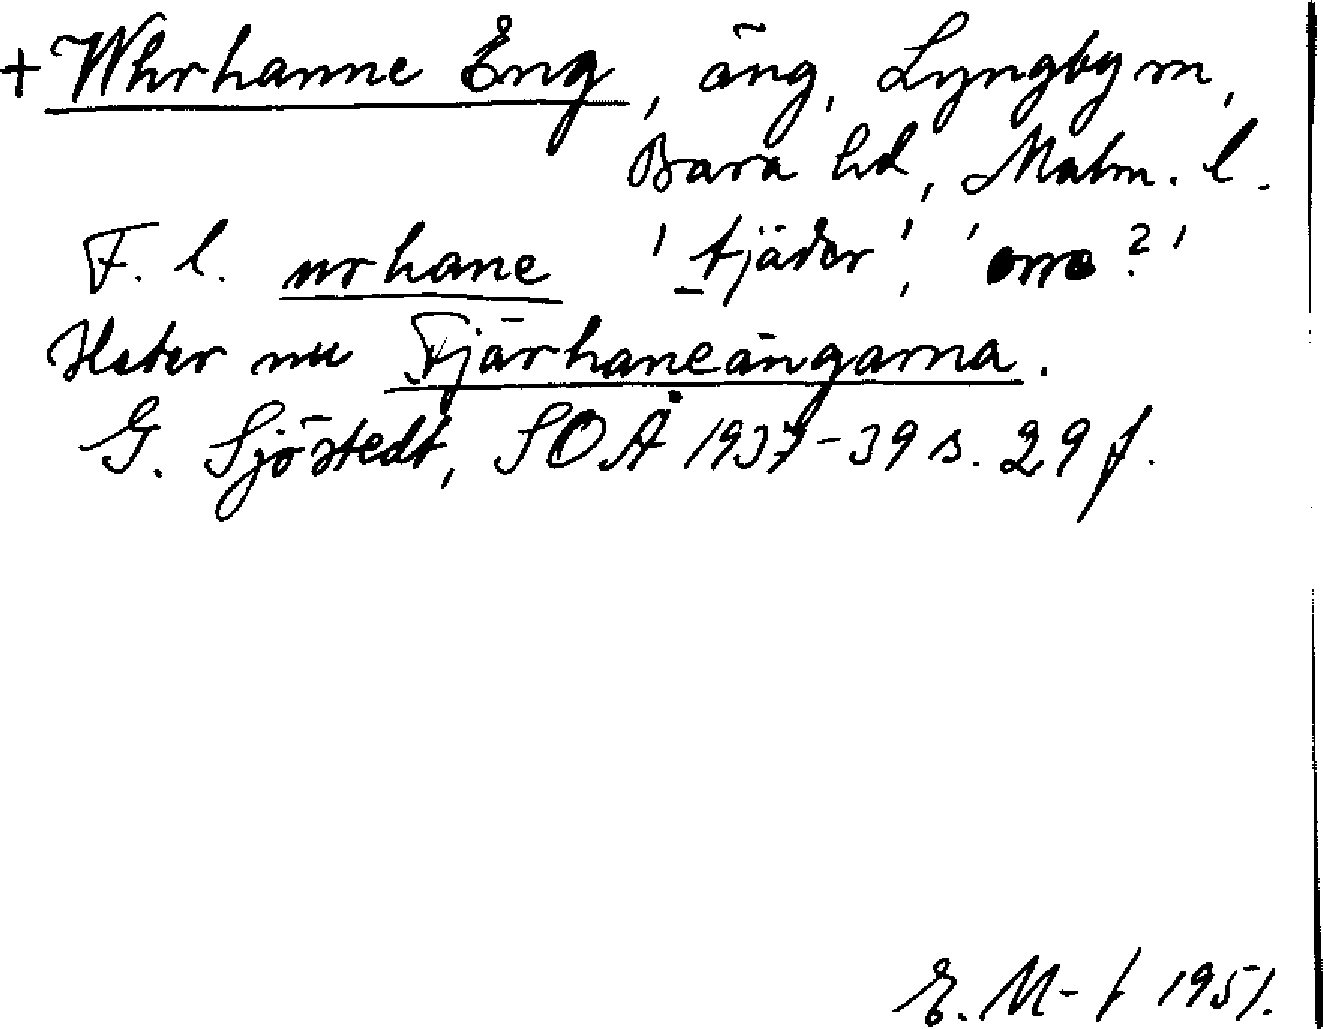 + Whrhanne Eng, äng, Lyngby sn,
Bara hd, Malm. l.
F. l. urhane 'tjäder', 'orre?'
Heter nu Tjärhaneängarna.
G. Sjöstedt, SOÅ 1937-39 s. 29 f.
E. M-f 1951.